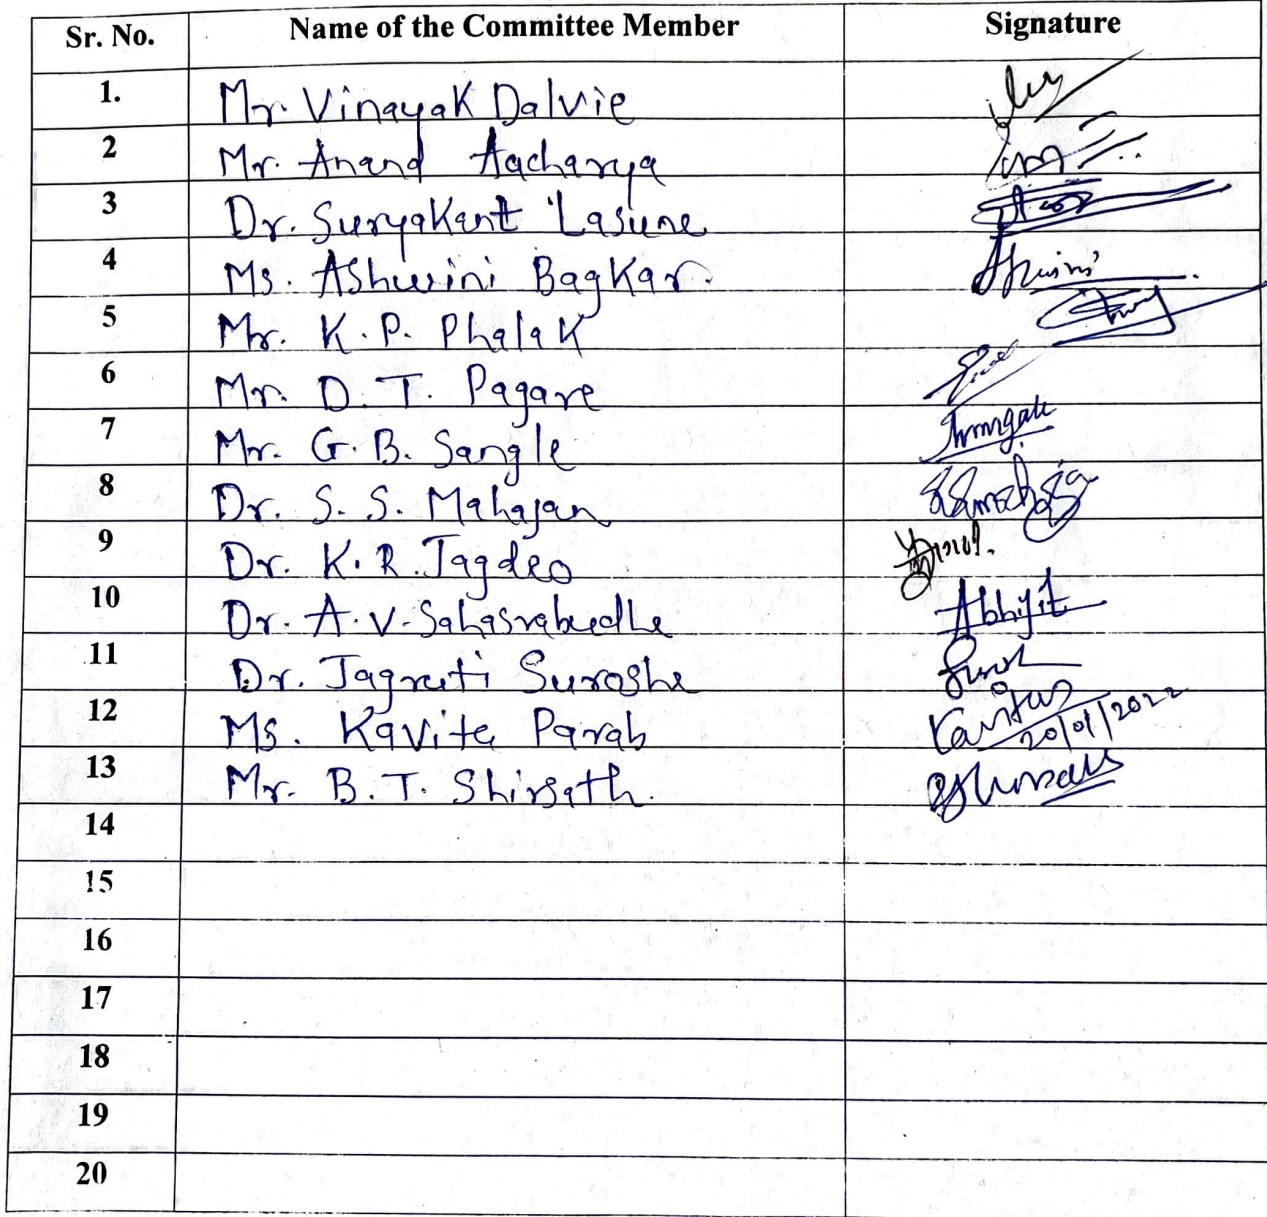 Sr. No. Name of the Committee Member Signature
1. Mr. Vinayak Dalvie
2 Mr. Anand Aacharya
3 Dr. Suryakant Lasune
4 Ms. Ashwini Bagkar. Ashwini
5 Mr. K. P. Phalak
6 Mr. D. T. Pagare
7 Mr. G. B. Sangle
8 Dr. S. S. Mahajan
9 Dr. K. R. Jagdeo
10 Dr. A. V. Sahasrabudhe Abhijit
11 Dr. Jagruti Suroshe
12 Ms. Kavita Parab Kavita
20/01/2022
13 Mr. B. T. Shirsath.
14
15
16
17
18
19
20